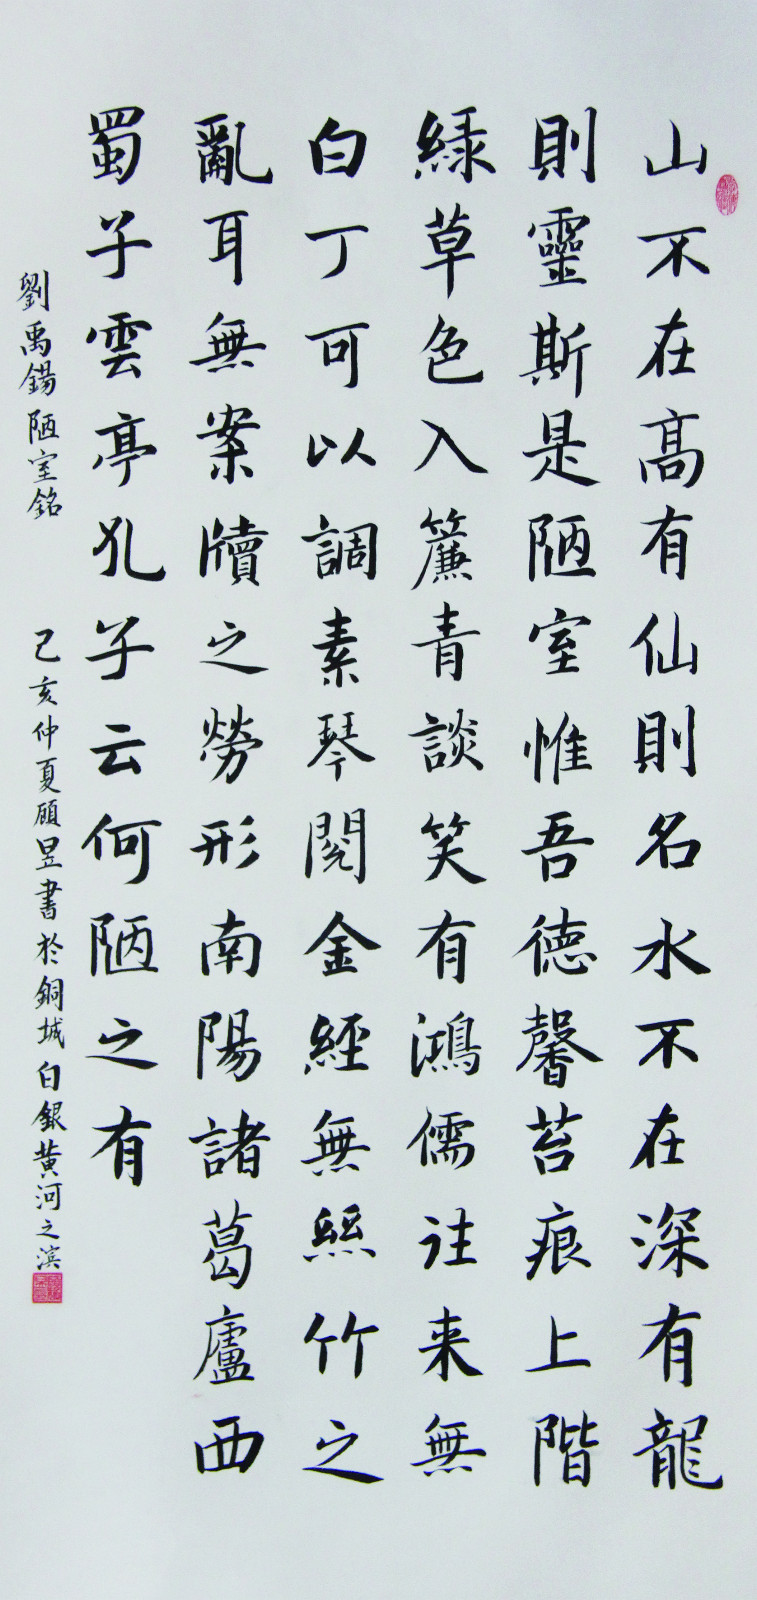 山不在高有仙則名水不在深有龍
則靈斯是陋室惟吾德馨苔痕上階
緑草色入簾青談笑有鴻儒往来無
白丁可以調素琴閱金經無絲竹之
亂耳無案牘之勞形南陽諸葛廬西
蜀子雲亭孔子云何陋之有
劉禹錫陋室銘
己亥仲夏願昱書於銅城白銀黄河之滨